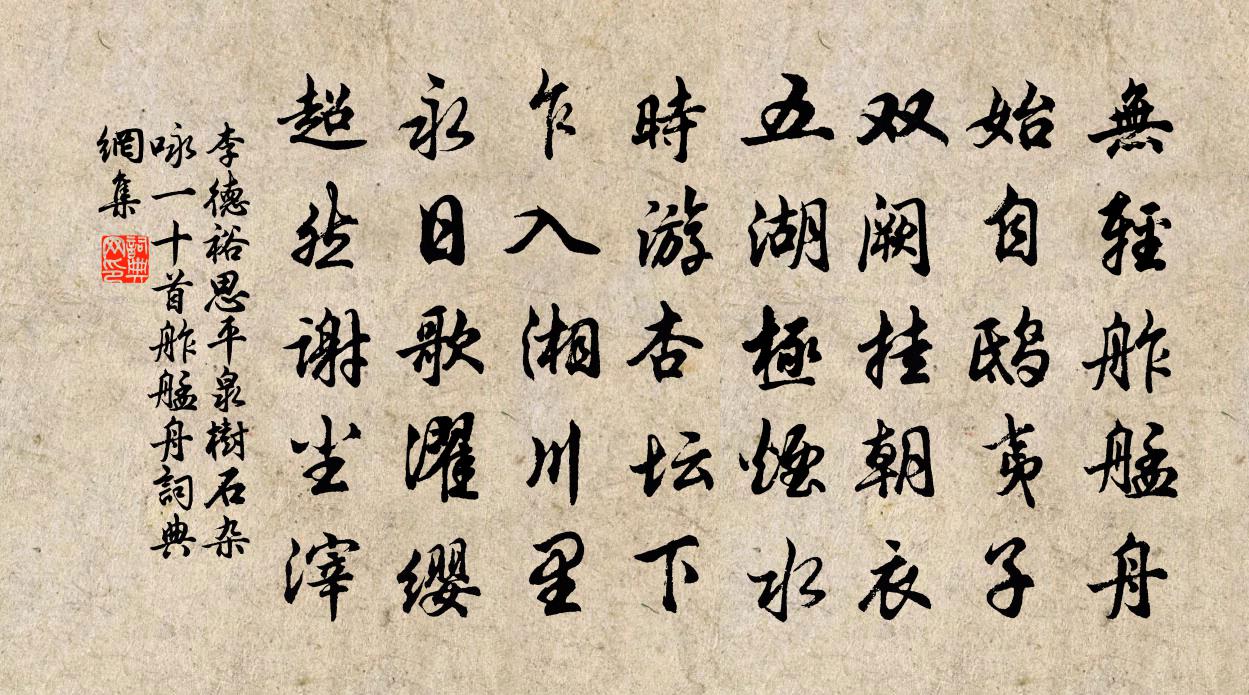 無輕舴艋舟
始自鸱夷子
双阙挂朝衣
五湖極煙水
時游杏坛下
乍入湘川里
永日歌濯缨
超然谢尘滓
李德裕思平泉樹石杂
咏一十首舴艋舟詞典
網集
詞典网印